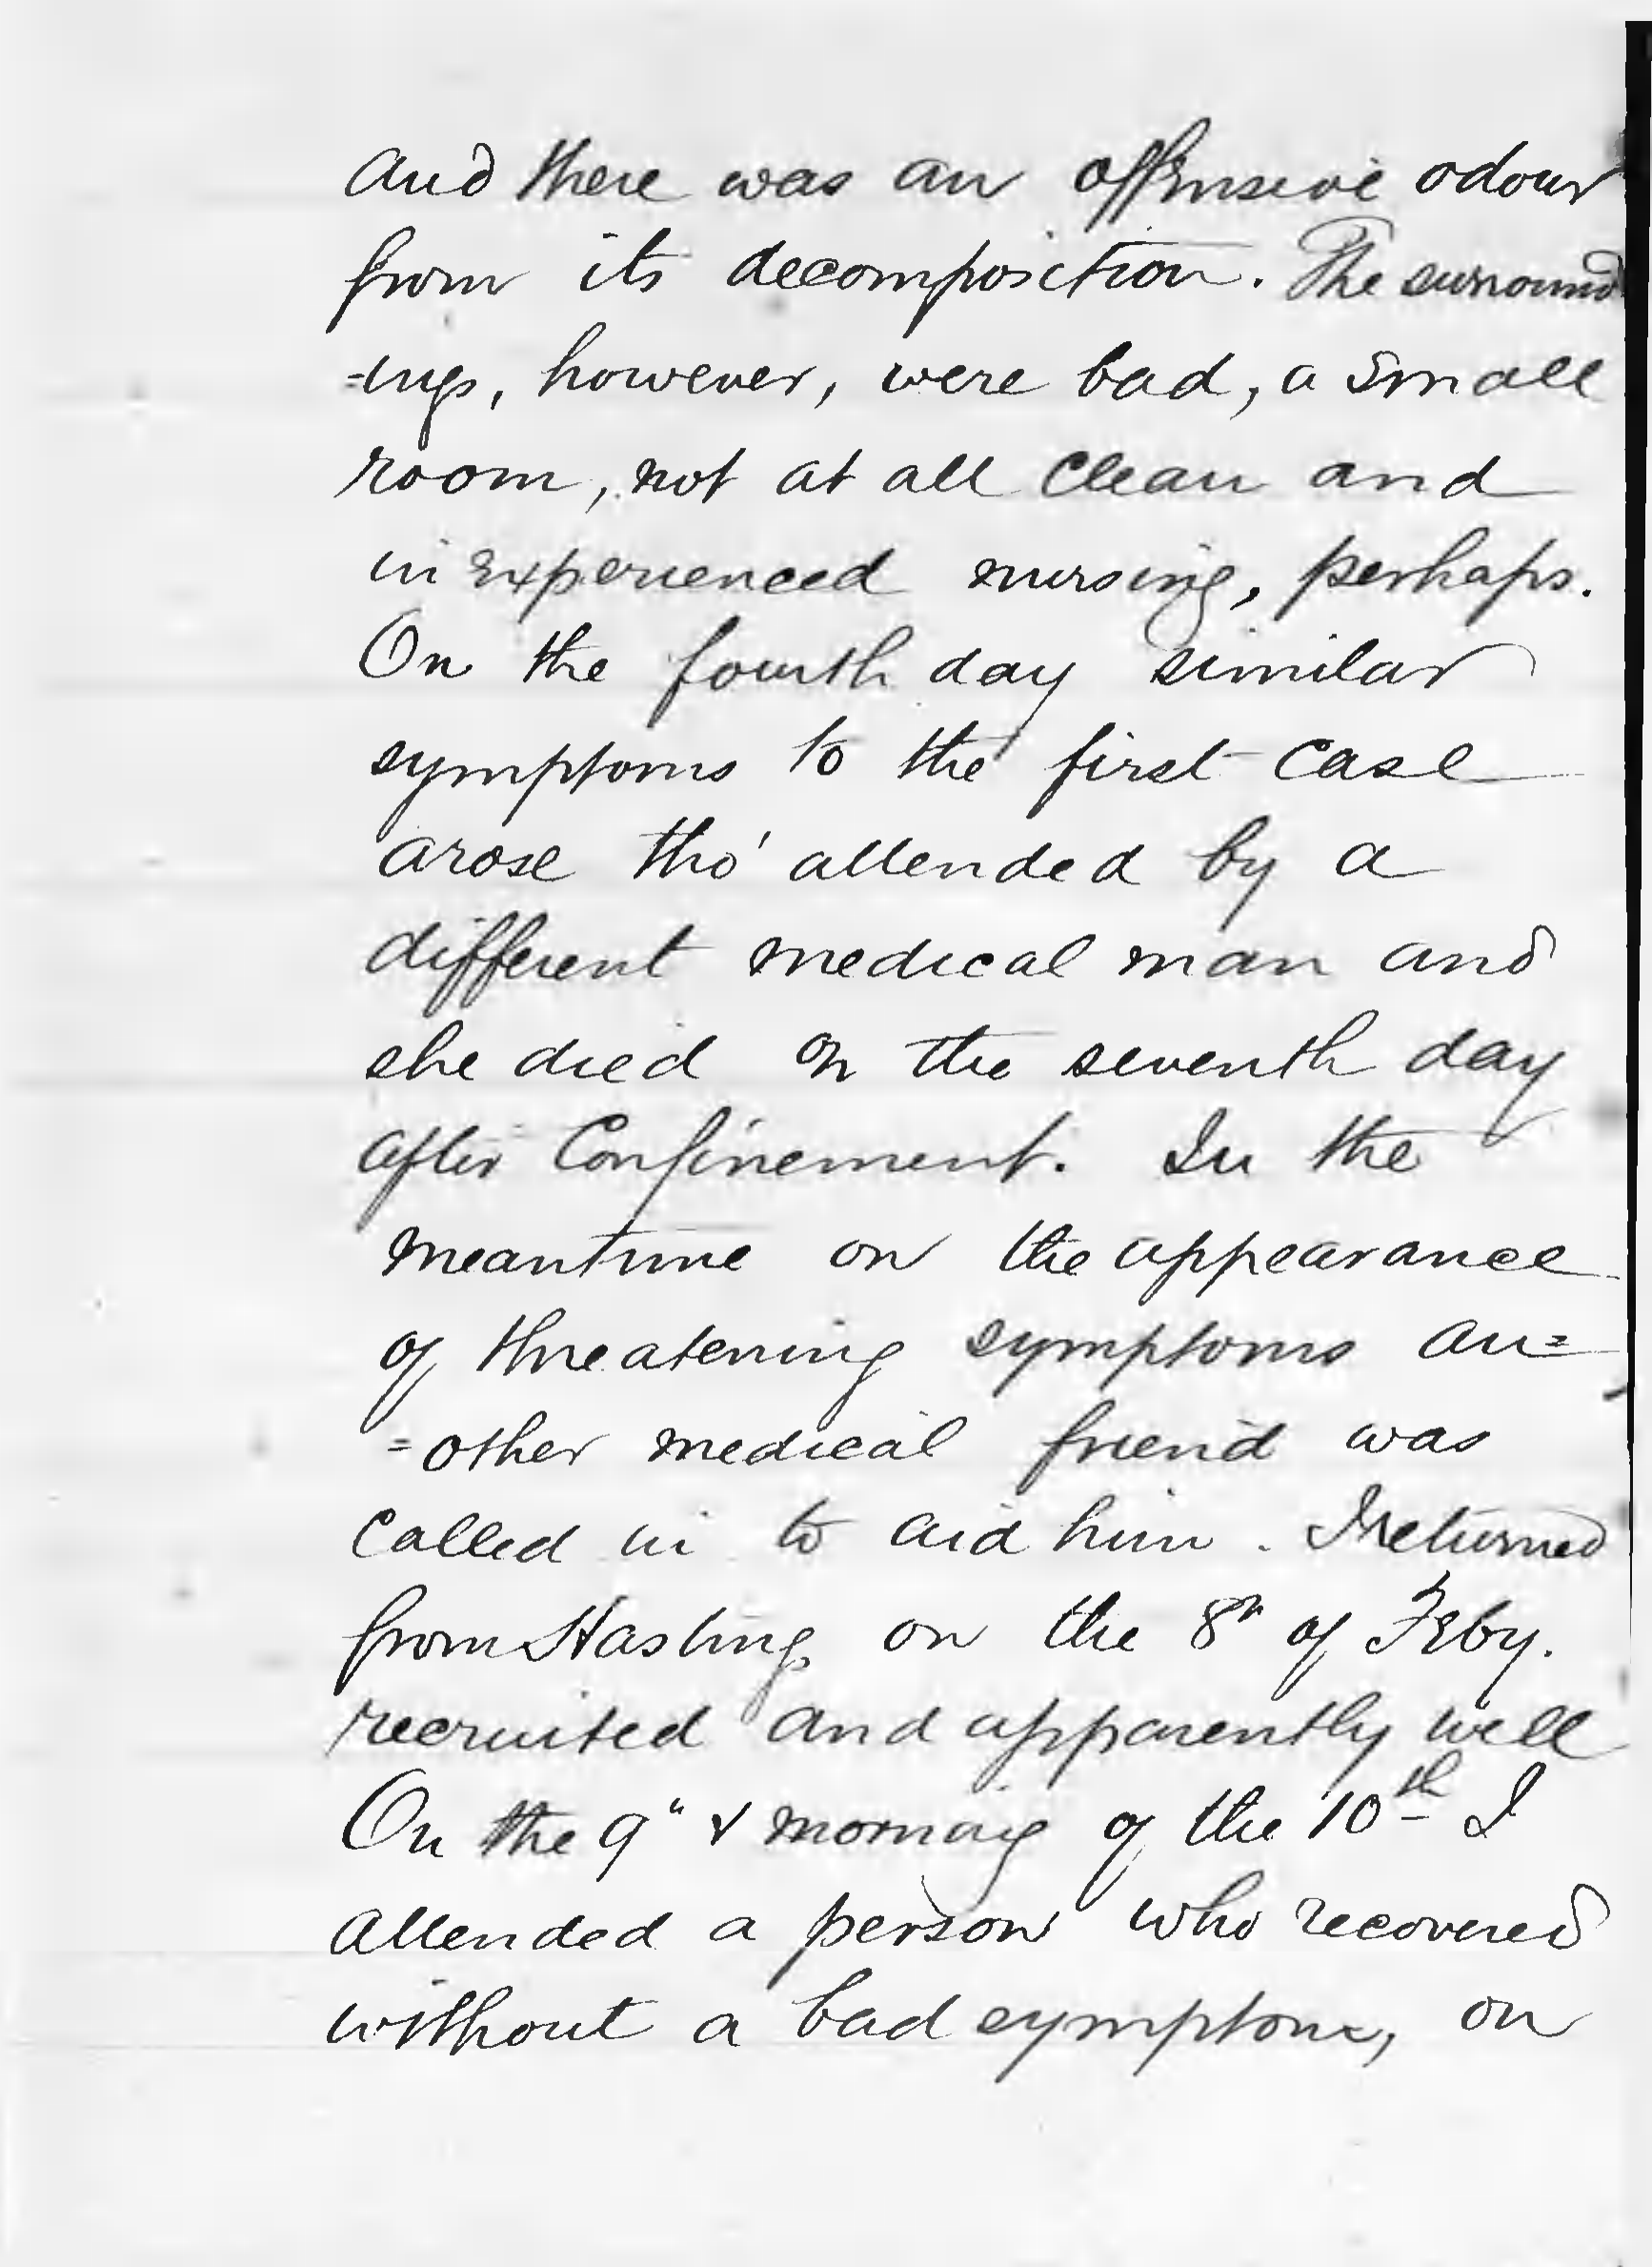 and there was an offensive odour
from its decomposition. The surround
=ings, however, were bad, a small
room, not at all clean and
inexperienced nursing, perhaps.
On the fourth day similar
symptoms to the first case
arose tho' attended by a
different medical man and
she died on the seventh day
after Confinement. In the
meantime on the appearance
of threatening symptoms an=
=other medical friend was
called in to aid him. I returned
from Hastings on the 8th of Feby.
recruited and apparently well
On the 9" & morning of the 10th I
attended a person who recovered
without a bad symptom, on